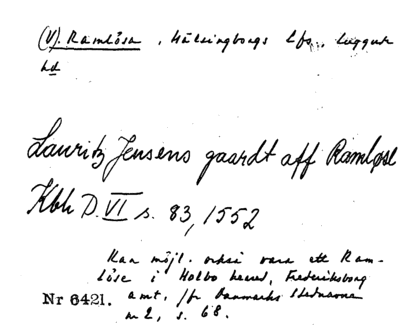 (V). Ramlösa, Hälsingborgs lfs., Luggude
hd
Lauritz Jensens gaardt aff Ramløse
Kbh D. VI s. 83, 1552
Kan möjl. också vara ett Ram-
löse i Holbo herred, Frederiksborg
Nr 6421. amt, jfr Danmarks Stednavne
nr 2, s. 68.